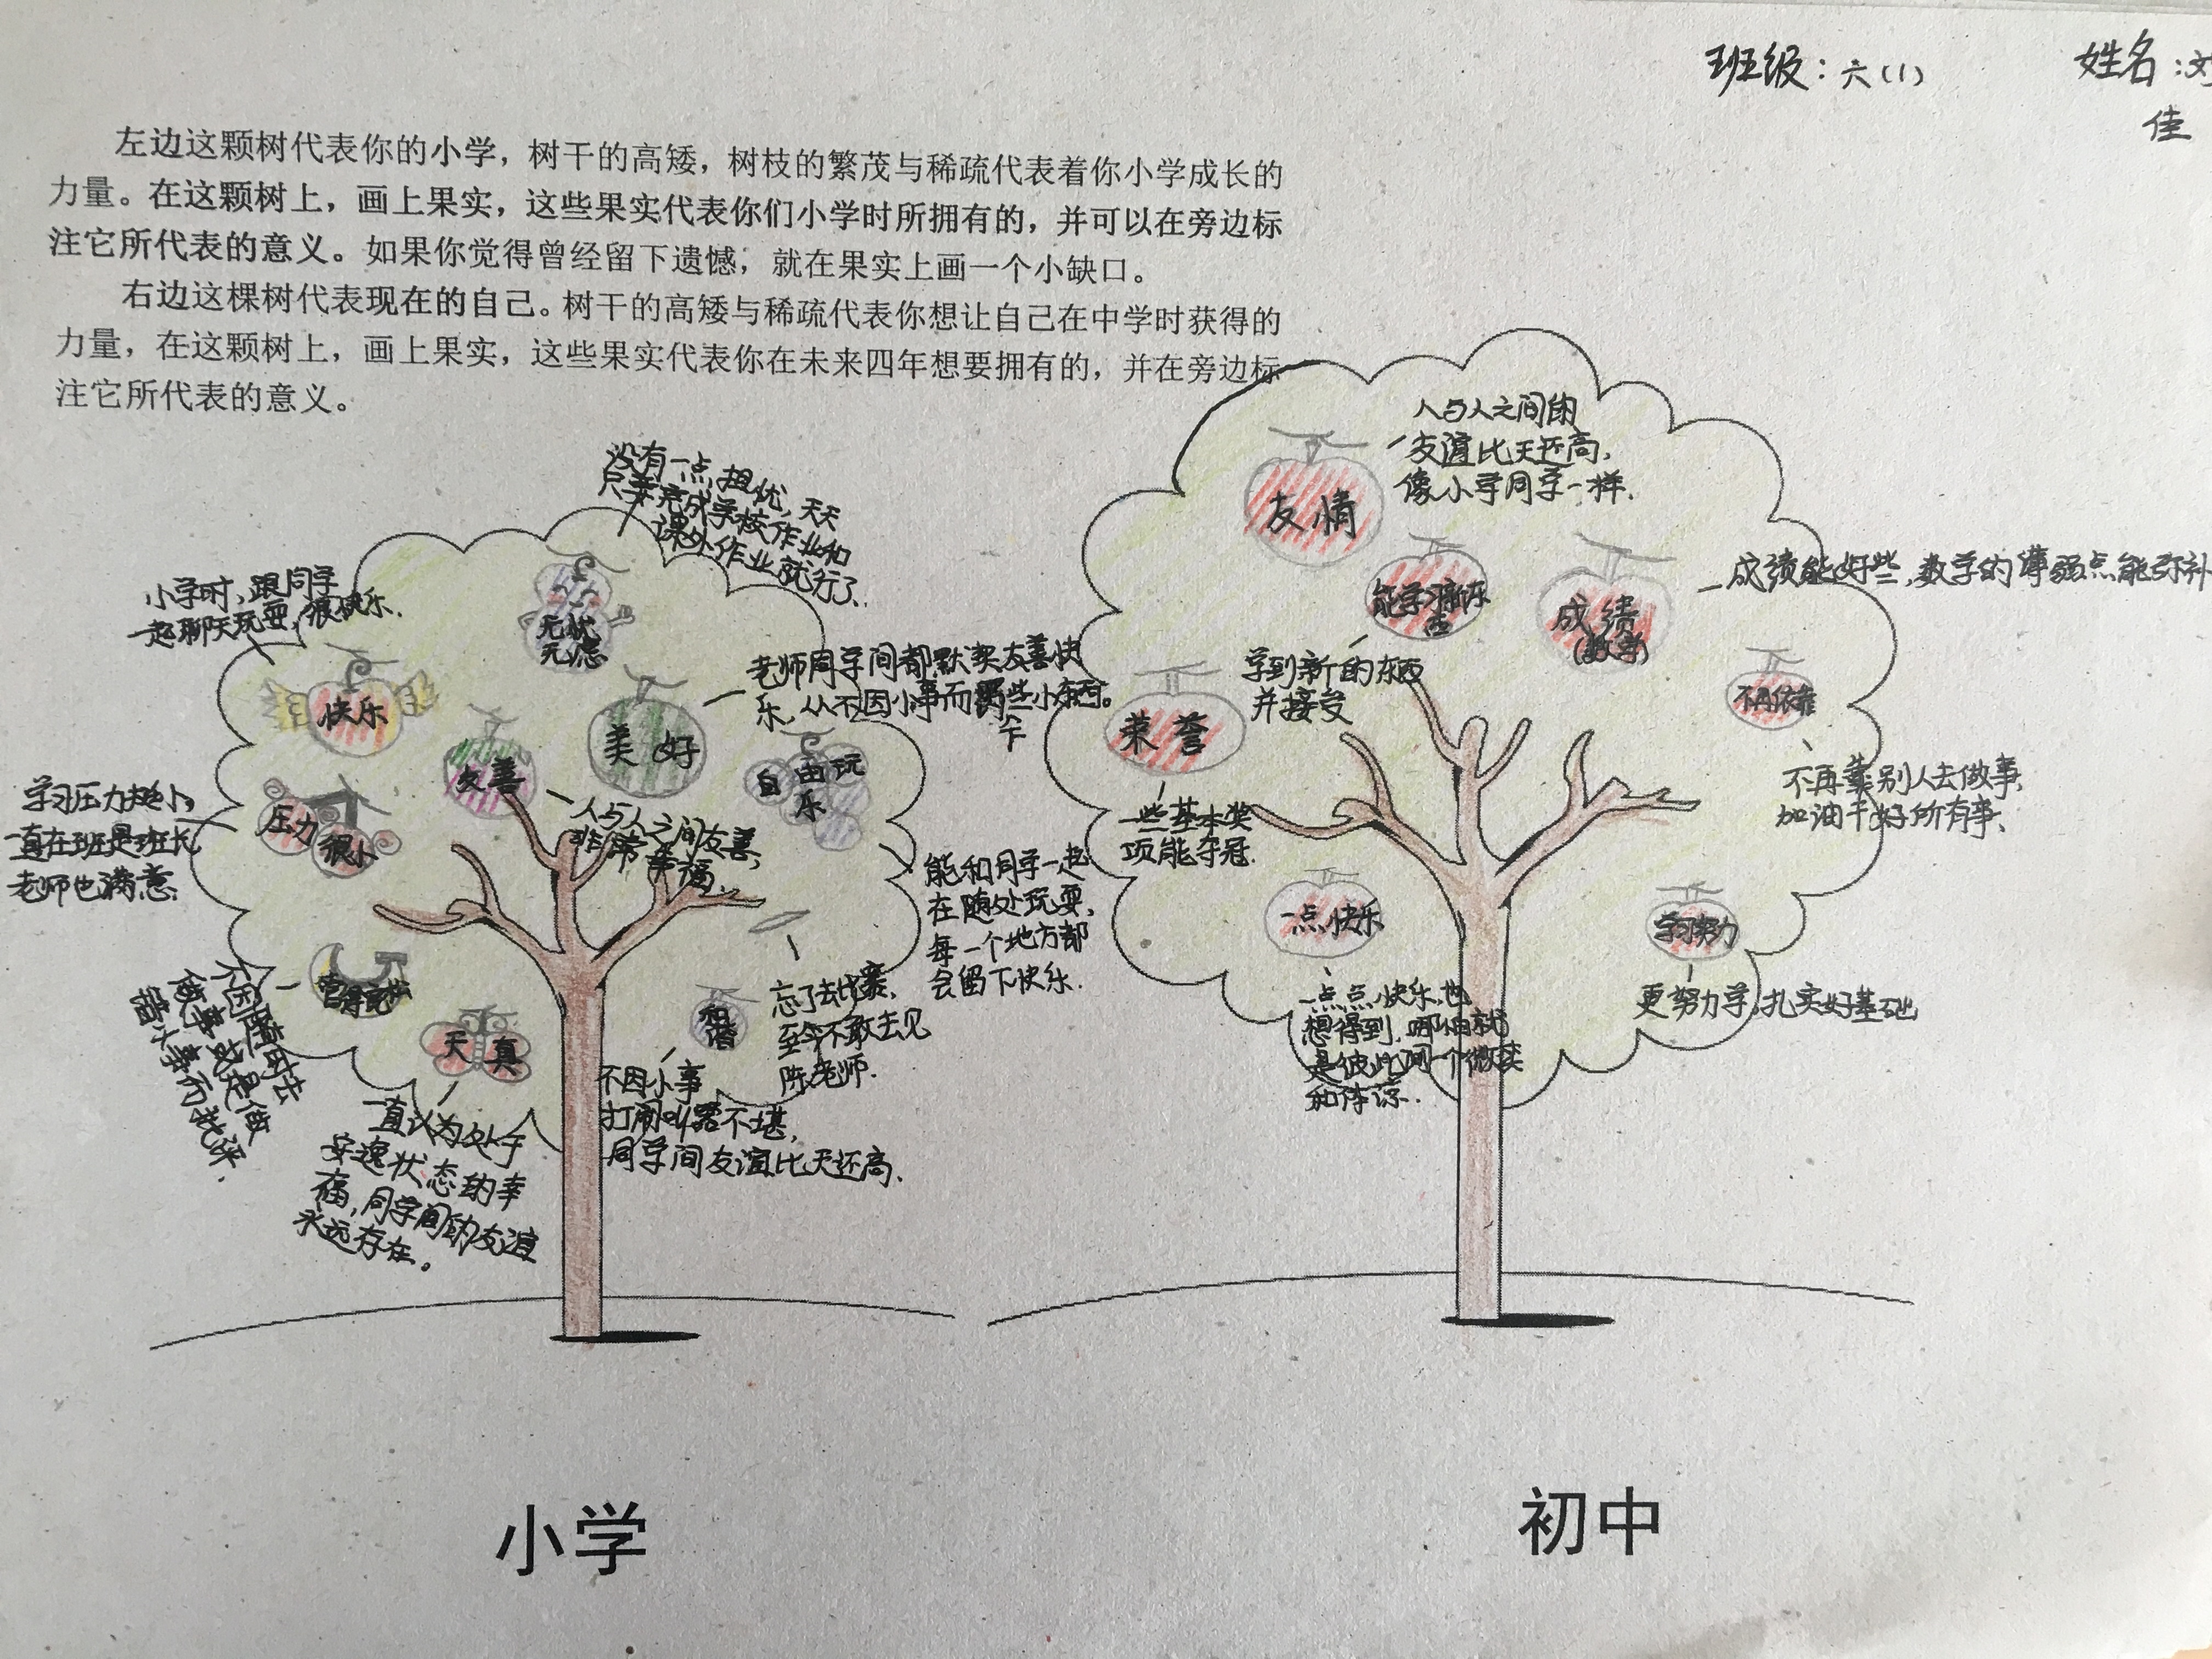 班级：六(1)
姓名：刘
佳
左边这颗树代表你的小学，树干的高矮，树枝的繁茂与稀疏代表着你小学成长的
力量。在这颗树上，画上果实，这些果实代表你们小学时所拥有的，并可以在旁边标
注它所代表的意义。如果你觉得曾经留下遗憾，就在果实上画一个小缺口。
右边这棵树代表现在的自己。树干的高矮与稀疏代表你想让自己在中学时获得的
力量，在这颗树上，画上果实，这些果实代表你在未来四年想要拥有的，并在旁边标
注它所代表的意义。
没有一点担忧，天天
只要完成学校作业和
课外作业就行了.
小学时，跟同学
一起聊天玩耍，很快乐.
无忧
无虑
快乐
老师同学间都默契友善快
乐，从不因小事而
美好
友善
自由玩
乐
人与人之间友善，
非常幸福
学习压力
一直在班是班长
老师也满意.
压力
很小
能和同学一起
在随处玩耍，
每一个地方都
会留下快乐.
忘了去比赛，
至今不敢去见
陈老师.
和
谐
不因小事
打闹叫骂不堪，
同学间友谊比天还高.
天真
一直认为处于
安逸状态的幸
福，同学间的友谊
永远存在。
人与人之间的
友谊比天还高，
像小学同学一样.
友情
能学习新东
西
学到新的东西
并接受
成绩
(数学)
成绩能好些，数学的薄弱点能弥补
不再依靠
不再靠别人去做事，
加油干好所有事、
荣誉
一些基本奖
项能夺冠.
一点快乐
一点点快乐，也
想得到，哪怕就
是彼此间一个微笑
和体谅.
学习努力
更努力学，扎实好基础
小学
初中